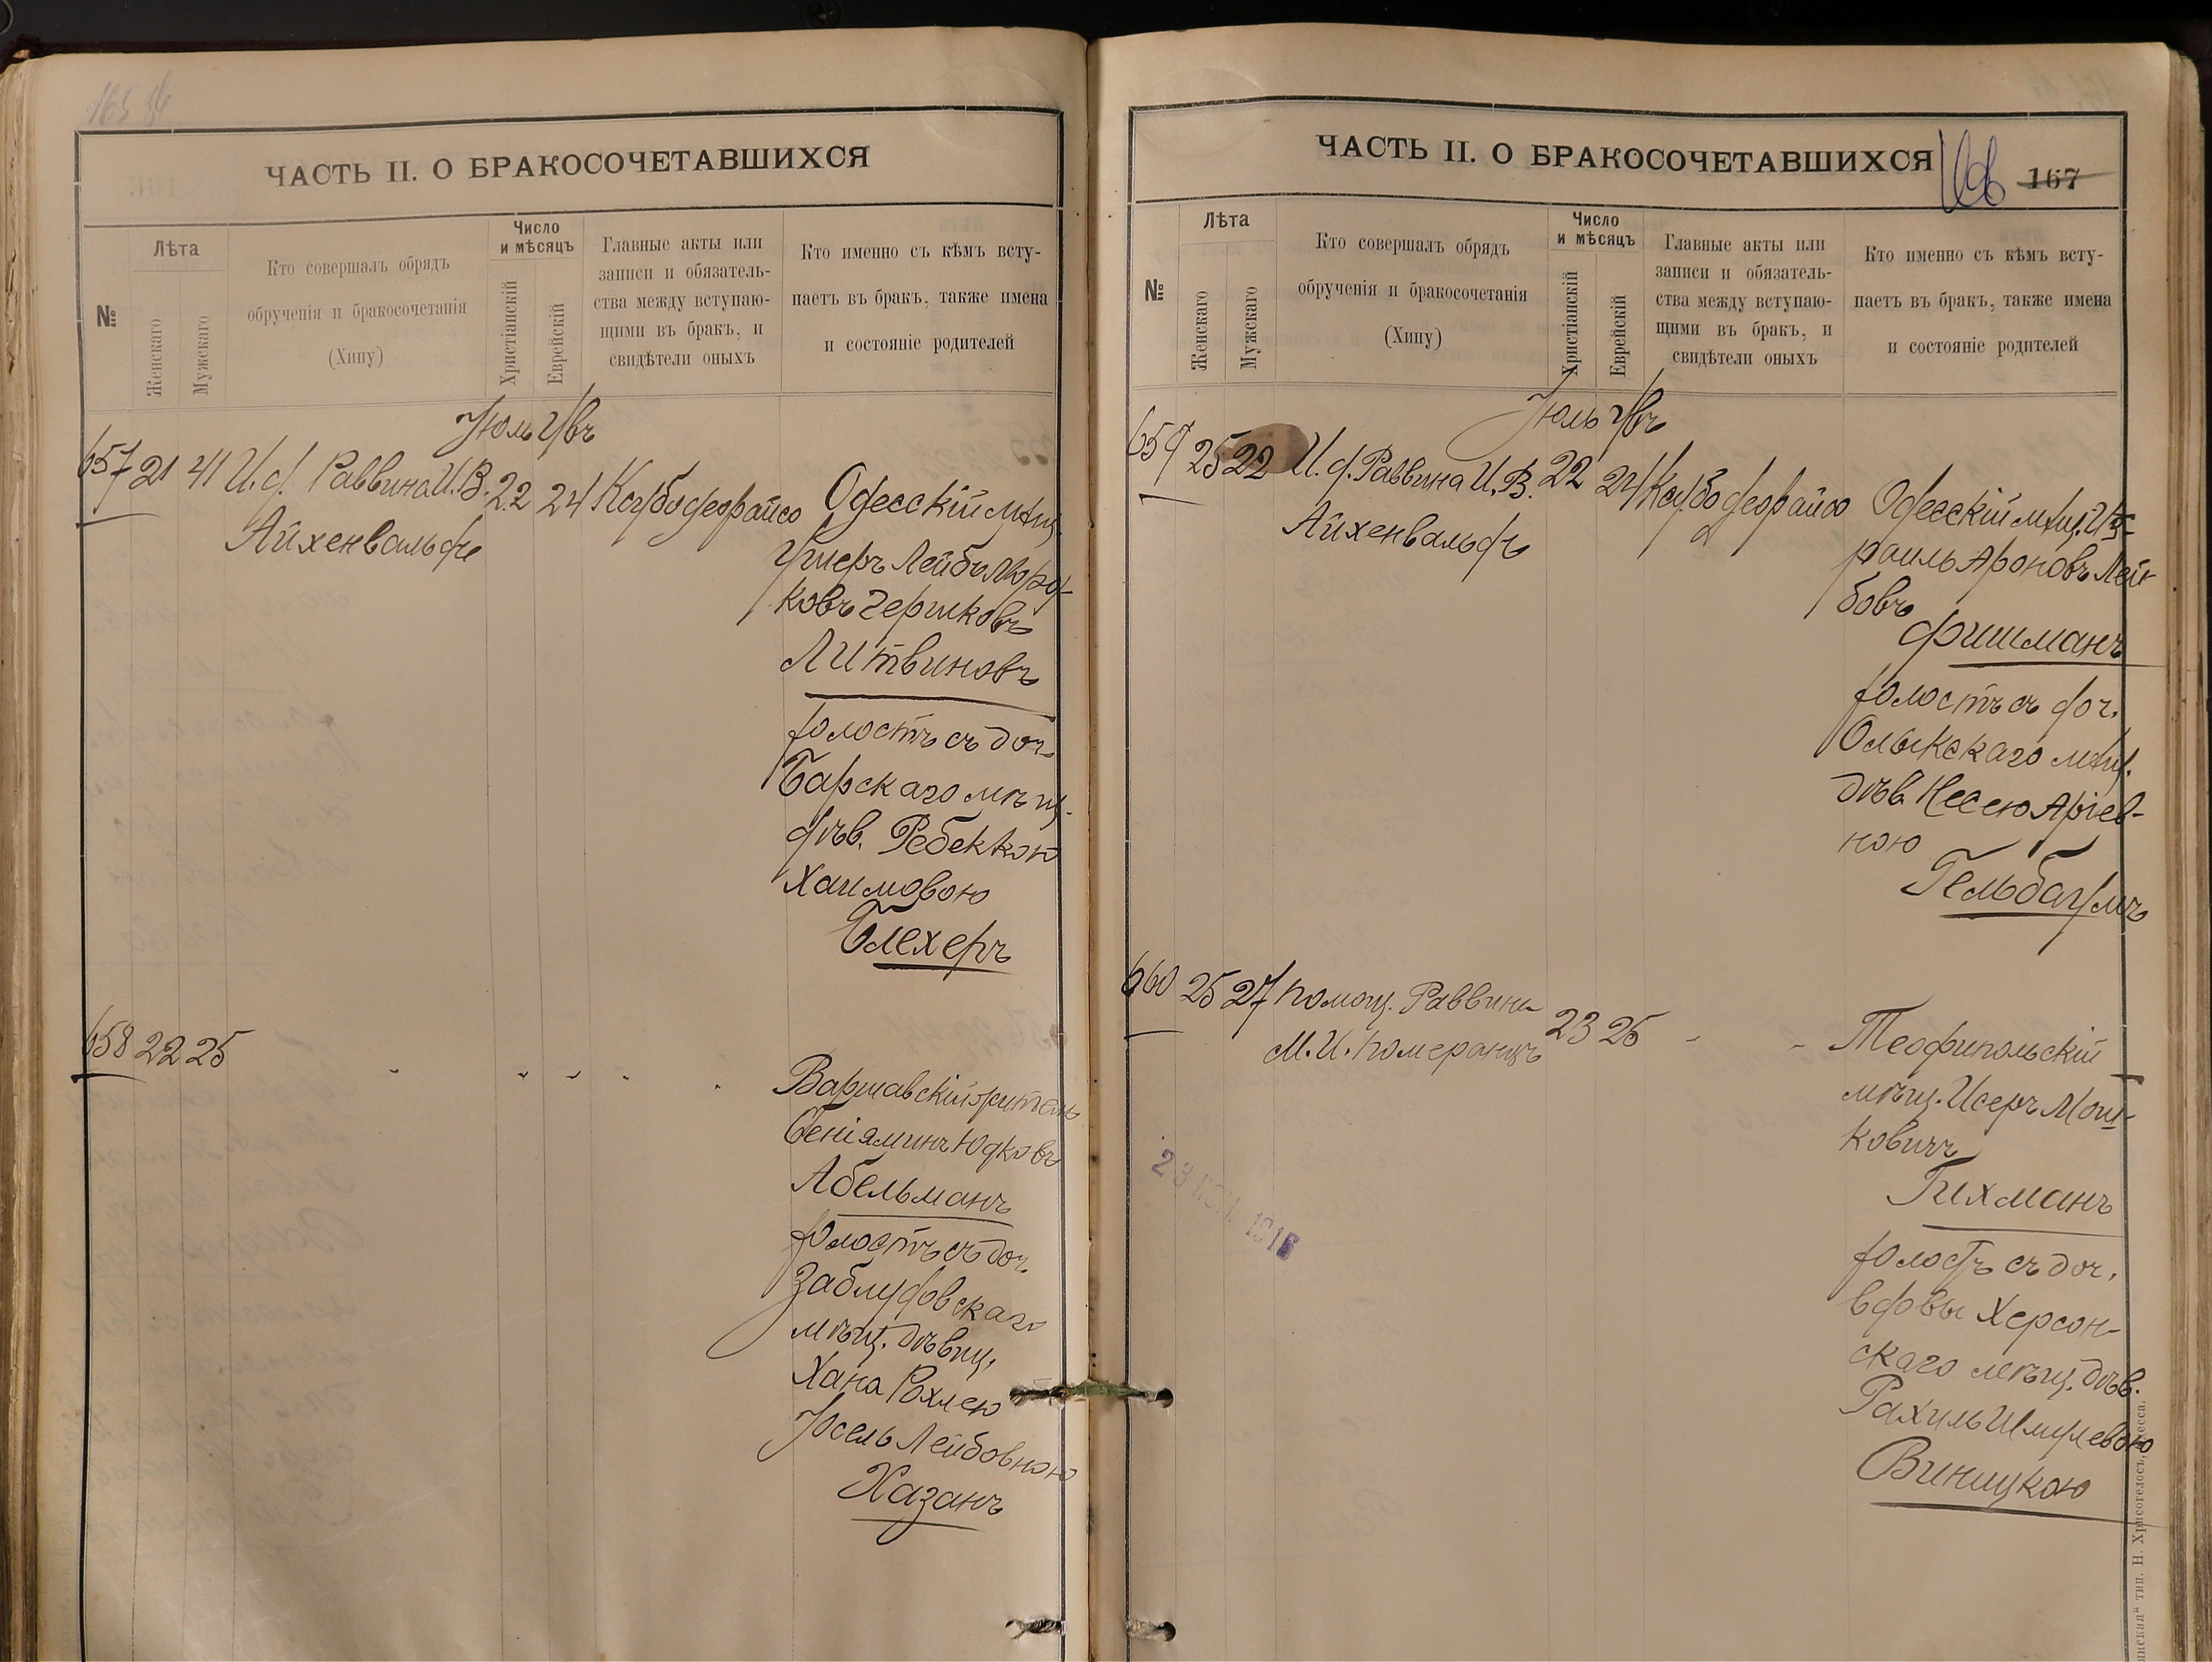 ЧАСТЬ II. О БРАКОСОЧЕТАВШИХСЯ
№
Лѣта
Женскаго
Мужскаго
Кто совершалъ обрядъ
обрученія и бракосочетанія
(Хипу)
Число
и мѣсяцъ
Христіанскій
Еврейскій
Главные акты или
записи и обязатель-
ства между вступаю-
щими въ бракъ, и
свидѣтели оныхъ
Кто именно съ кѣмъ всту-
паетъ въ бракъ, также имена
и состояніе родителей
657 21 41 И. д. Раввина И. В. 22 24 Одесскій мѣщ.
Айхенвальдъ
Литвиновъ
холостъ съ доч.
Барскаго мѣщ.
дѣв. Ребеккою
Хаимовою
Блехеръ
658 22 25
Варшавскій житель
Беніяминъ Юдковъ
Абельманъ
холостъ съ доч.
Заблудовскаго
мѣщ. дѣвиц.
Хана Рохлею
Іосель Лейбовною
Хазанъ
ЧАСТЬ II. О БРАКОСОЧЕТАВШИХСЯ
167
№
Лѣта
Женскаго
Мужскаго
Кто совершалъ обрядъ
обрученія и бракосочетанія
(Хипу)
Число
и мѣсяцъ
Христіанскій
Еврейскій
Главные акты или
записи и обязатель-
ства между вступаю-
щими въ бракъ, и
свидѣтели оныхъ
Кто именно съ кѣмъ всту-
паетъ въ бракъ, также имена
и состояніе родителей
659 25 22 И. д. Раввина И. В. 22 24 Одесскій мѣщ. Из-
Айхенвальдъ
раиль Ароновъ Лей-
бовъ
Фишманъ
холостъ съ доч.
Олыкскаго мѣщ.
дѣв. Несею Аріев-
ною
Гельбаумъ
660 25 27 Помощ. Раввина 23 25
М. И. Померанцъ
Теофипольскій
мѣщ. Исеръ Мош-
ковичъ
Гихманъ
холостъ съ доч.
вдовы Херсон-
скаго мѣщ. дѣв.
Рахиль Шмулевою
Виницкою